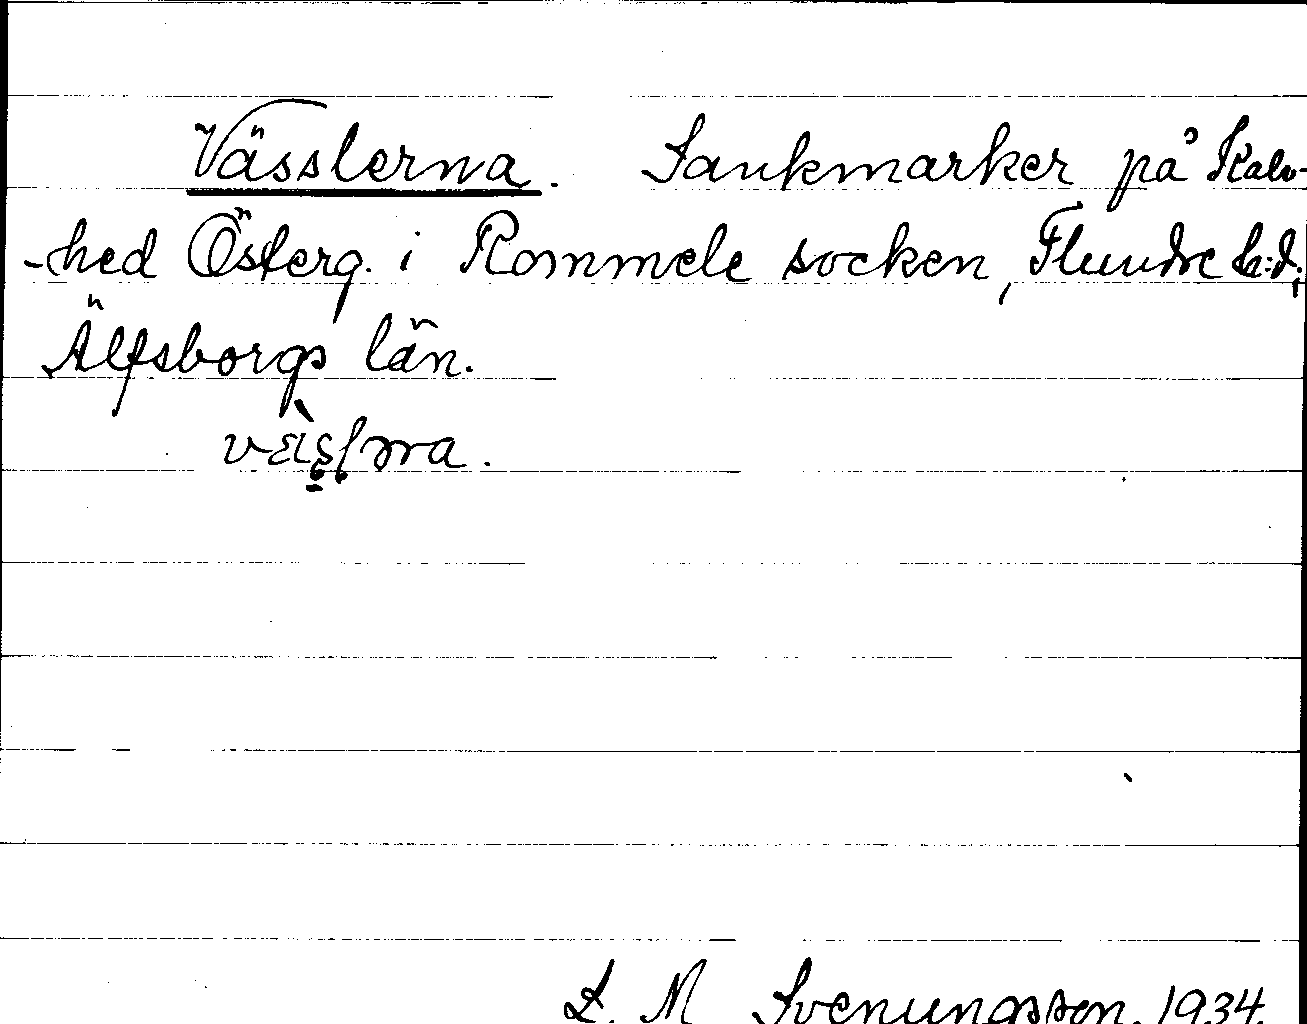 Vässlerna. Sankmarker på Kalv-
-hed Österg. i Rommele socken, Flundre h:d,
Älfsborgs län.
S. M Svenungsson. 1934.